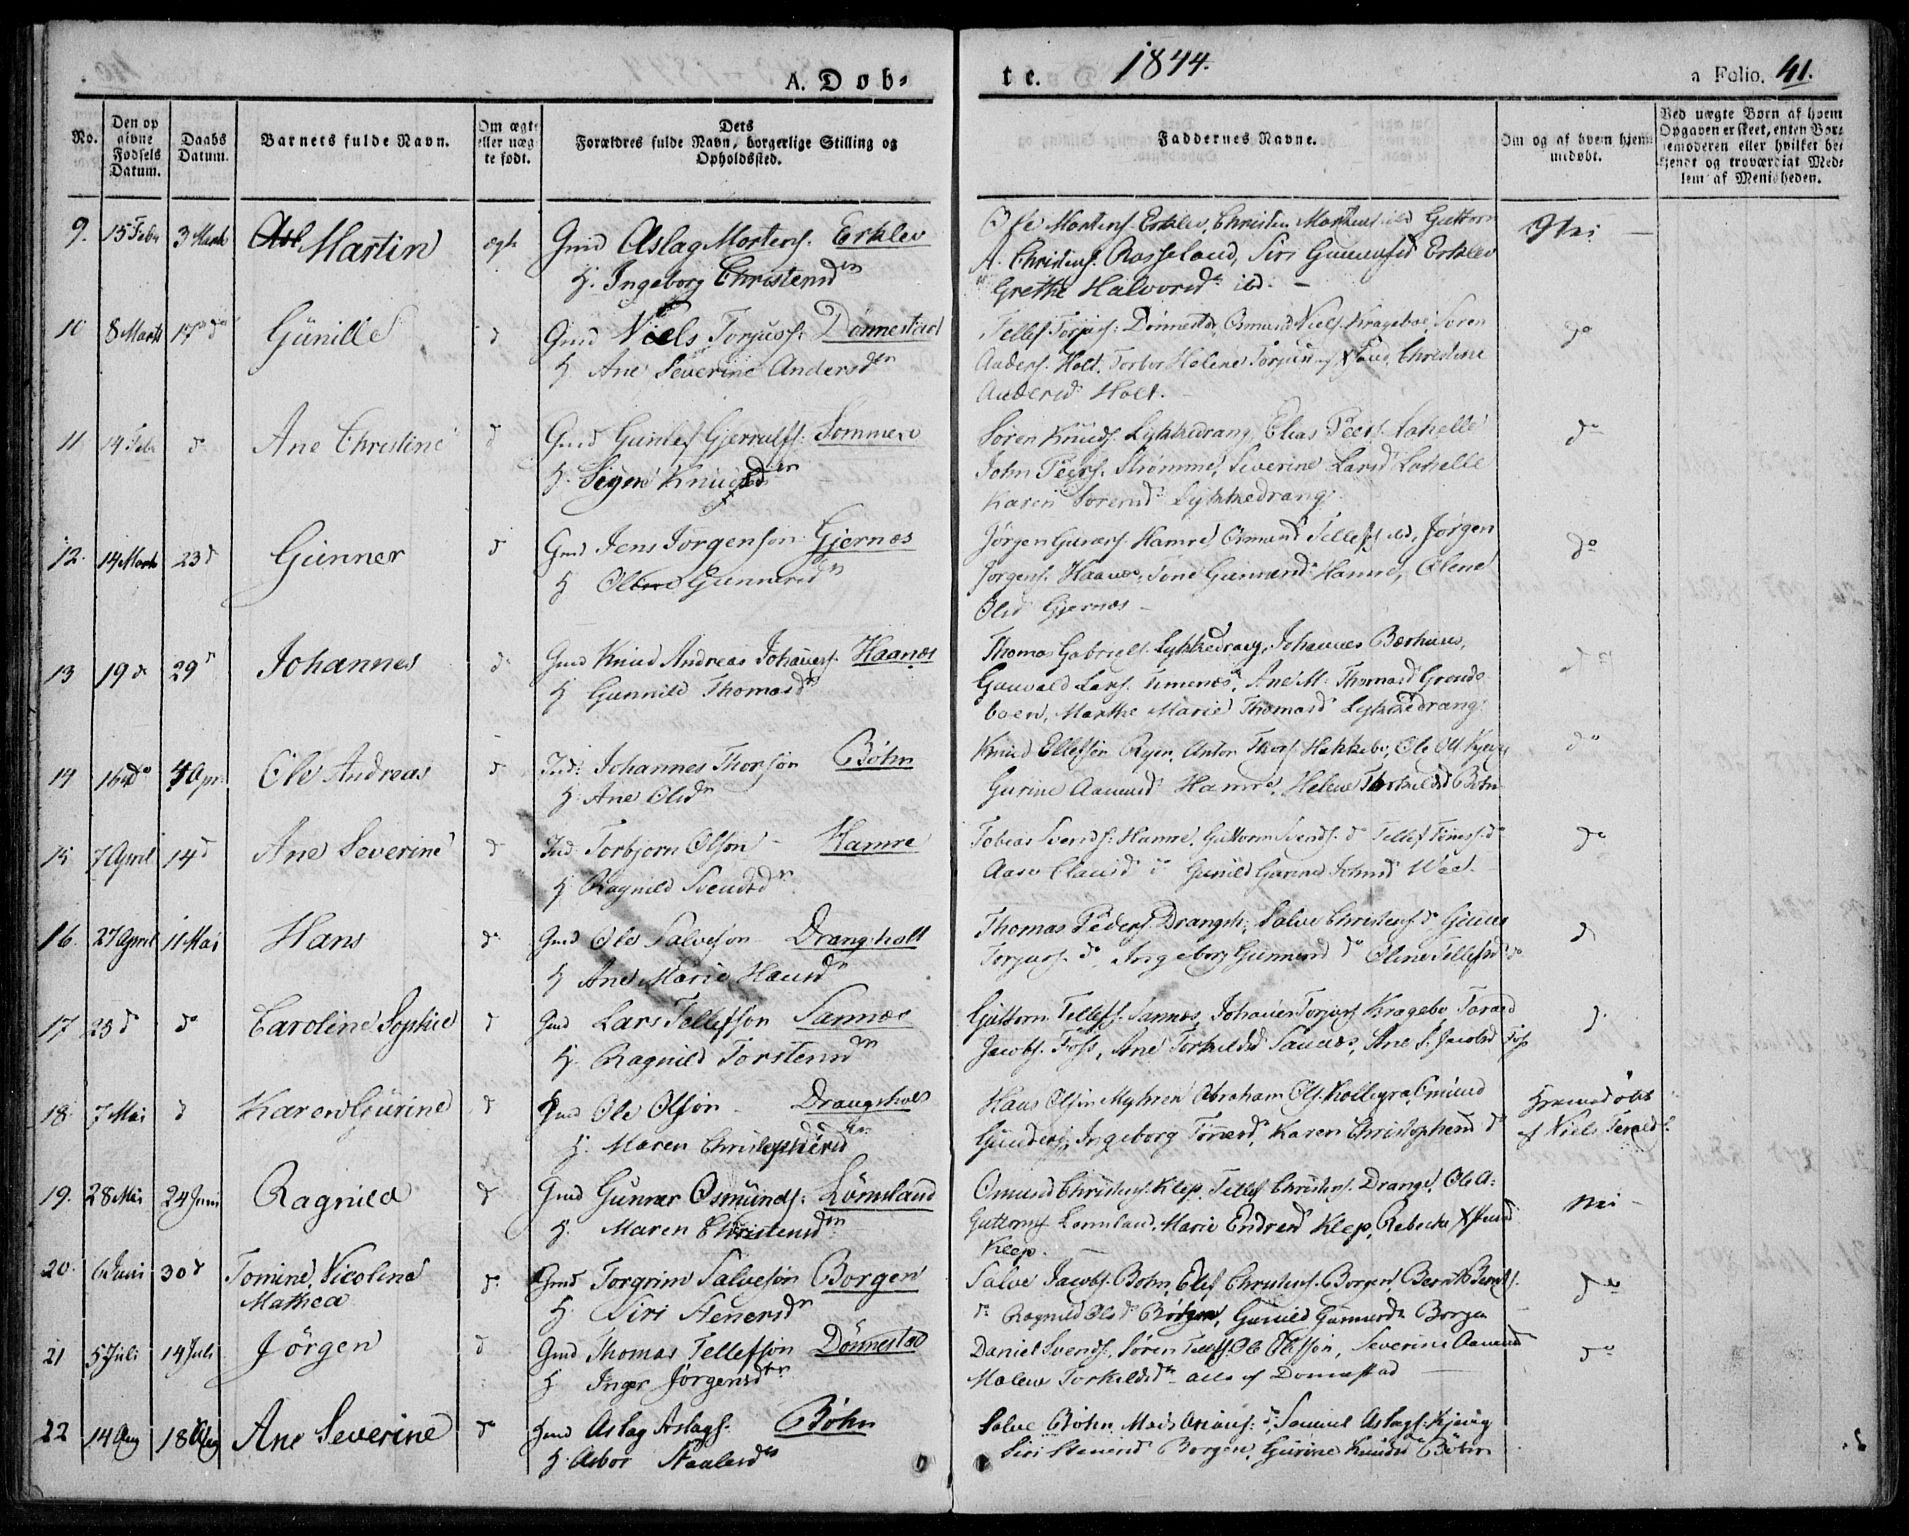 A. Døb-
te.
1844.
a Folio. 41.
No.
Den opgivne Fødsels Datum.
Daabs Datum.
Barnets fulde Navn.
Om ægte eller uægte født.
Dets Forældres fulde Navn, borgerlige Stilling og Opholdssted.
Faddernes Navne.
Om og af hvem hjemmedøbt.
Ved uægte Børn af hvem Opgaven er skeet, enten Barnemoderen eller hvilket bekjendt og troværdigt Medlem af Menigheden.
9. 15 Febr 3 Marts Martin ægte Gmd Aslag Mortens. Erklev
H. Ingeborg Christensd
Mortens. Erklev, Christen Mortens. Guttorm
A. Christens. Rosseland, Siri Gunuldsd Erklev
Grethe Halvorsd ibd.
Nei
10 8 Marts 17 do Gunille d Gmd Niels Torjuss: Dønnestad
H Ane Severine Andersdtr
Tellef Torjuss: Dønnestad, Osmund Niels. Krageboe, Søren
Anders. Holt, Torbor Helene Christine
Andersd Holt.
do
11 14 Febr d Ane Christine d Gmd Gunlef Gjerrulfs: Sommere
H. Sigri Knudsd
Søren Knuds. Lykkedrang, Elias Peers. Lohelle
John Peers. Strømme, Severine Larsd Lohelle
Karen Sørensd Lykkedrang
do
12. 14 Marts 23 d Gunner d Gmd Jens Jorgenson Gjernes
H Gunnersd
Jørgen Gunners Hamre, Osmund Tellefs ibd, Jørgen
Jørgens. Haanes, Tone Gunnersd Hamre, Olene
Olsd Gjernes
do
13 19 d 29 d Johannes d Gmd Knud Andreas Johanes. Haanæs
H Gunnild Thomasd
Thomas Gabriels. Lykkedrang, Johannes Bærhuus,
Gunvald Lars. Timenes, Ane M. Thomasd Grønds
boen, Marthe Marie Thomasd Lykkedrang.
do
14 16 do 4 Apr Ole Andreas d Ind: Johannes Thorsøn Bøhn
H. Ane Olsd
Knud Ellefsøn Ryen, Anton Thors. Hakkebo, Ole Ols. Kjevig
Gurine Aamunds Hamre, Helene Thorkildsd Bøhn
do
15 7 April 14 d Ane Severine d Ind Torbjorn Olson Hamre
H Ragnild Svendsd
Tobias Svends: Hamre, Guttorm Svends. do Tellef Tønes. do
Aase Clausd do Gunild Gurine Johnsd Wee.
do
16. 27 April 11 Mai Hans d Gmd Ole Salveson Drangsholt
H Ane Marie Hansd
Thomas Peders. Drangsh., Salve Christens. do
Torjus. do, Ingeborg Gunnersd do Oline Tellefsd do
d
17 25 d do Caroline Sophie d Gmd Lars Tellefson Sannæs
H. Ragnild Torstensd
Guttorm Tellefs. Sannæs, Johanes Torjus. Kragebo, Tarald
Jacobs. Foss, Ane Terkildsd Sannæs, Ane S. Jacobsd Foss
d.
18. 7 Mai d Karen Gurine d Gmd Ole Olson Drangsholt
H. Maren Christophersd
Hans Olsen Myhren, Abraham Ols. Osmund
Gunders., Ingeborg Tønesd, Karen Christophersd do
Hjemmedøbt
af Niels Teralds.
19. 28 Mai 24 Juni Ragnild d Gmd Gunner Osmunds: Lømsland
H. Maren Christensd
Osmund Christens. Klep, Tellef Christens. Drange, Ole A.
Guttorms Lomsland, Marie Endresd Klep, Rebecka
Klep.
Nei
20. 6 Juni 30 d Tomine, Nicoline d Gmd Torgrim Salveson Borgen
Mathea H. Siri Stenersd
Salve Jacobs. Bøhn, Elef Christens. Borgen, Bernt Bernts.
do Ragnild Olsd Borgen, Gunild Gunnersd Borgen
do
21 5 Juli 14 Juli Jørgen d Gmd Thomas Tellefsøn Dønnestad
H Inger Jørgensd
Daniel Svends., Søren Tellefs. Ole Olsson, Severine Aamunds
Malene Torkildsd alle af Donnestad
do
22 14 Aug 18 Aug Ane Severine do Gmd Aslag Aslags: Bøhn
H. Asbor Staalesd
Salve Bøhn, Mads do, Samuel Aslags. Kjevig
Siri Stenersd Borgen, Gurine Knudsd Bøhn